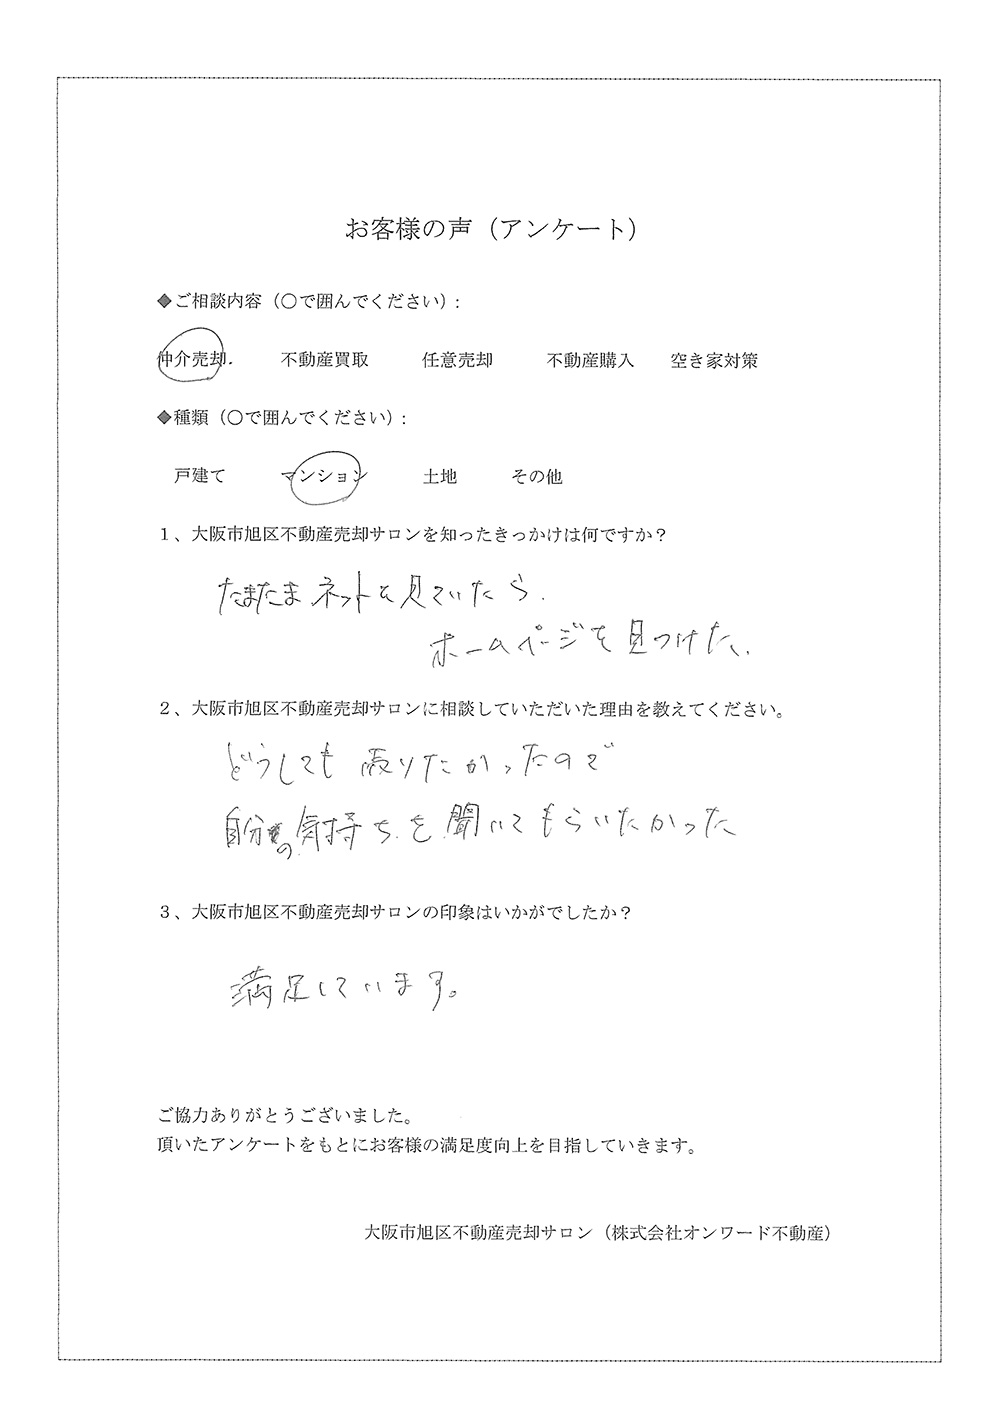 お客様の声（アンケート）
◆ご相談内容（○で囲んでください）：
仲介売却． 不動産買取 任意売却 不動産購入 空き家対策
◆種類（○で囲んでください）：
戸建て マンション 土地 その他
１、大阪市旭区不動産売却サロンを知ったきっかけは何ですか？
たまたまネットを見ていたら．
ホームページを見つけた、
２、大阪市旭区不動産売却サロンに相談していただいた理由を教えてください。
どうしても売りたかったので
自分の気持ちを聞いてもらいたかった
３、大阪市旭区不動産売却サロンの印象はいかがでしたか？
満足しています。
ご協力ありがとうございました。
頂いたアンケートをもとにお客様の満足度向上を目指していきます。
大阪市旭区不動産売却サロン（株式会社オンワード不動産）